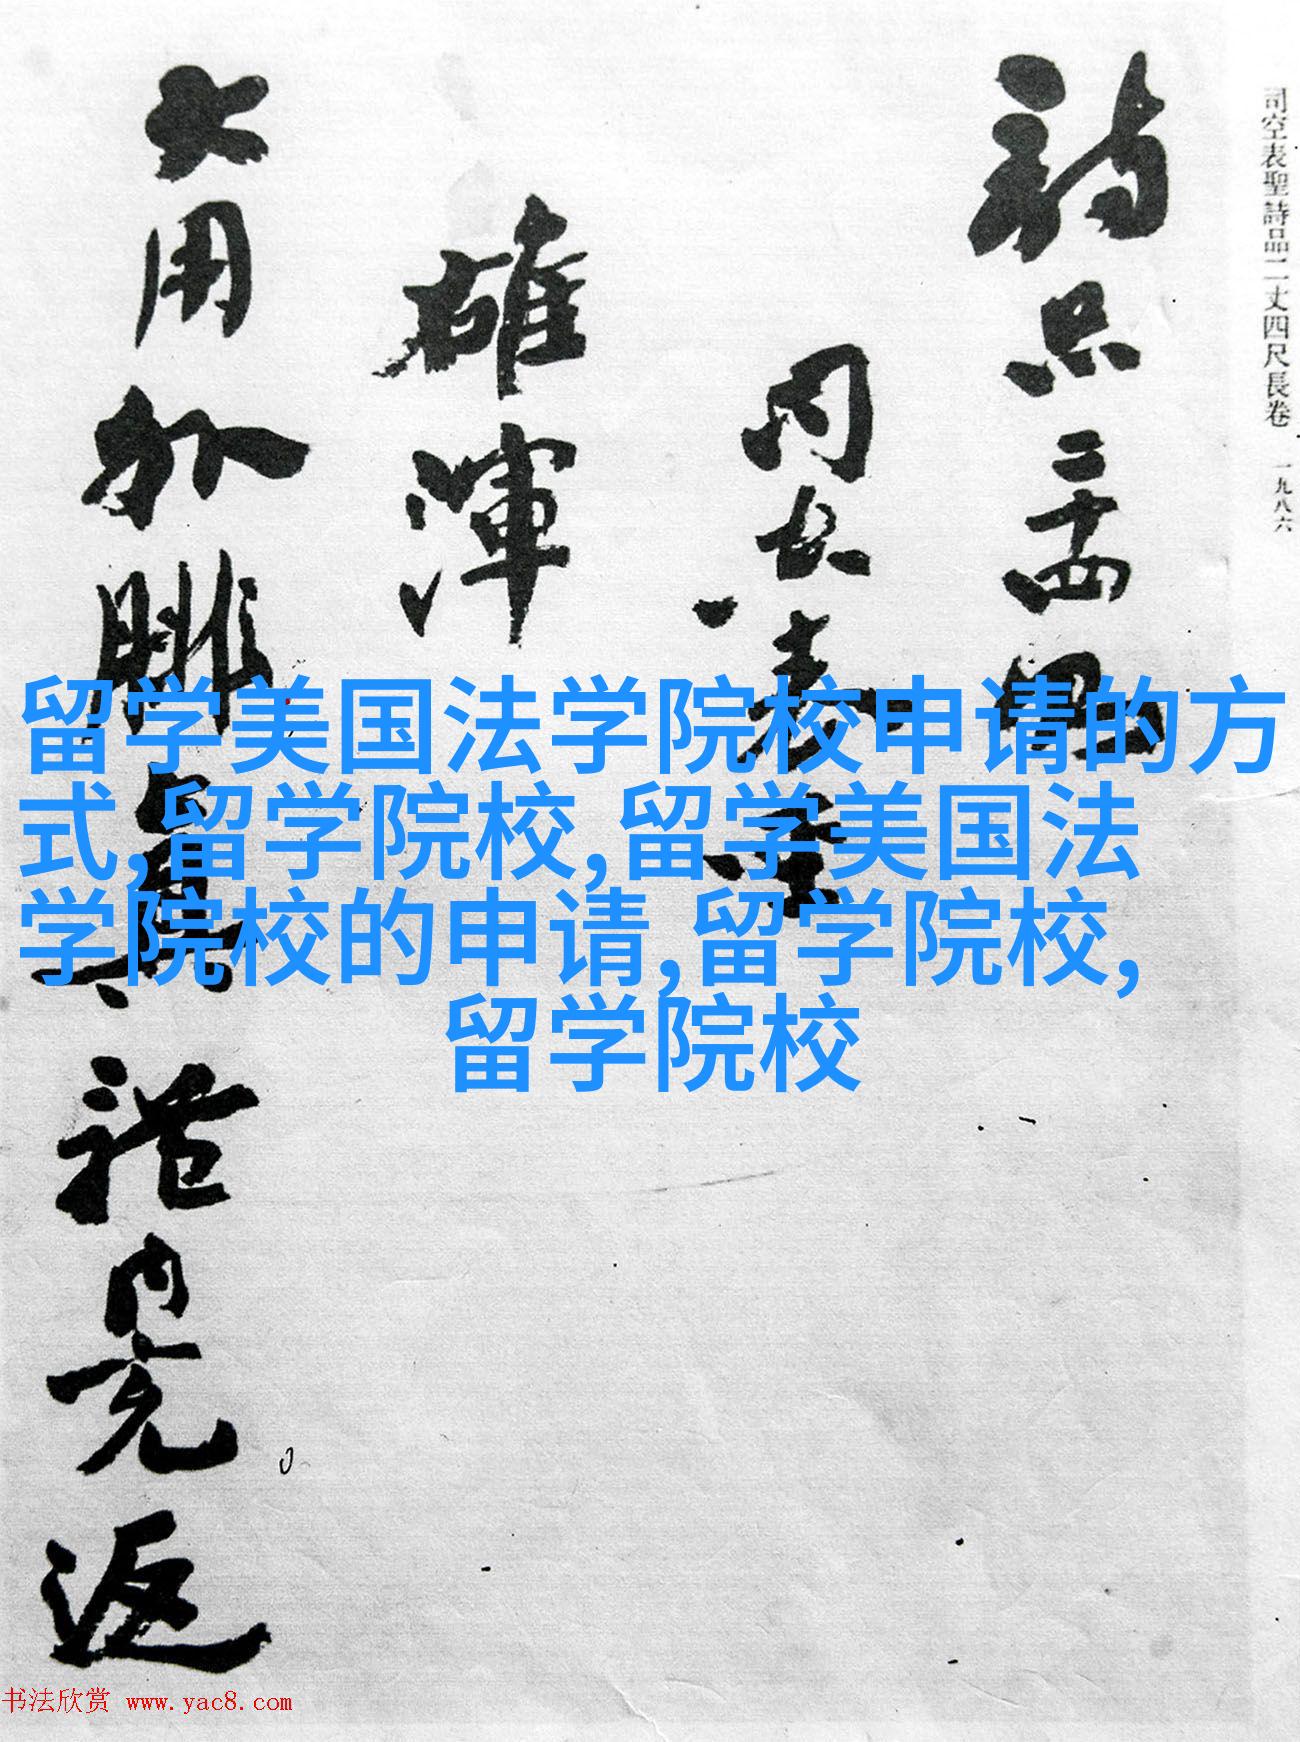 司空表聖詩品二丈四尺長卷 一九八六
詩品二十四則
司空表聖
雄渾
大用外腓真體內充返
留学美国法学院校申请的方
式,留学院校,留学美国法
学院校的申请,留学院校,
留学院校
书法欣赏 www.yac8.com